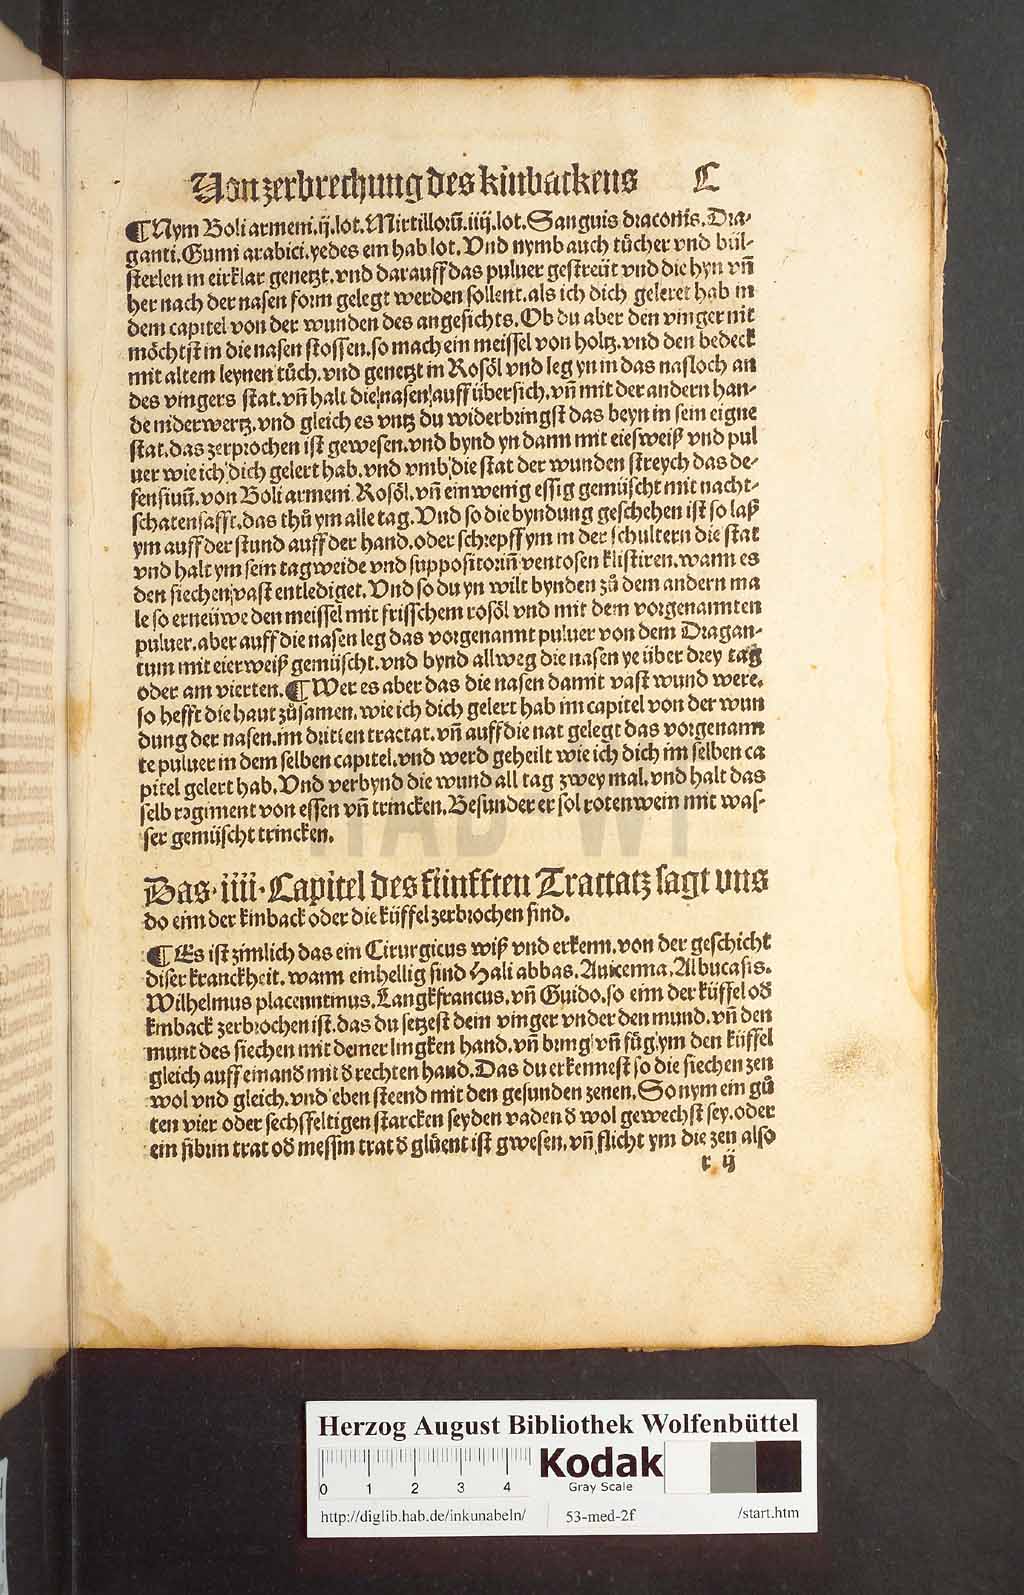 Uon zerbrechung des kinbackens C
¶ Nym Boli armeni.ij.lot.Mirtilloꝝ̄.iiij.lot.Sanguis draconis.Dra⸗
ganti.Gumi arabici.yedes ein hab lot.Vnd nymb auch tuͤcher vnd bül⸗
sterlen in eirklar genetzt.vnd darauff das puluer gestreüt vnd die hyn vn̄
her nach der nasen form gelegt werden sollent.als ich dich geleret hab in
dem capitel von der wunden des angesichts.Ob du aber den vinger nit
möchtst in die nasen stossen.so mach ein meissel von holtz.vnd den bedeck
mit altem leynen tůch.vnd genetzt in Rosöl vnd leg yn in das nasloch an
des vingers stat.vn̄ halt die nasen auff übersich.vn̄ mit der andern han⸗
de niderwertz.vnd gleich es vntz du widerbringst das beyn in sein eigne
stat.das zerprochen ist gewesen.vnd bynd yn dann mit eiesweiß vnd pul
uer wie ich dich gelert hab.vnd vmb die stat der wunden streych das de⸗
fensiuū.von Boli armeni Rosöl.vn̄ ein wenig essig gemüscht mit nacht⸗
schatensafft.das thů ym alle tag.Vnd so die byndung geschehen ist so laß
ym auff der stund auff der hand.oder schrepff ym in der schultern die stat
vnd halt ym sein tagweide vnd suppositoriū ventosen klistiren.wann es
den siechen vast entlediget.Vnd so du yn wilt bynden zů dem andern ma
le so erneüwe den meissel mit frisschem rosöl vnd mit dem vorgenannten
puluer.aber auff die nasen leg das vorgenannt puluer von dem Dragan⸗
tum mit eierweiß gemüscht.vnd bynd allweg die nasen ye über drey tag
oder am vierten.¶ Wer es aber das die nasen damit vast wund were.
so hefft die haut zůsamen.wie ich dich gelert hab im capitel von der wun
dung der nasen.im dritten tractat.vn̄ auff die nat gelegt das vorgenann
te puluer in dem selben capitel.vnd werd geheilt wie ich dich im selben ca
pitel gelert hab.Vnd verbynd die wund all tag zwey mal.vnd halt das
selb regiment von essen vn̄ trincken.Besunder er sol rotenwein mit was⸗
ser gemüscht trincken.
Das.iiii.Capitel des fünfften Tractatz sagt vns
do eim der kinback oder die küffel zerbrochen sind.
¶ Es ist zimlich das ein Cirurgicus wiß vnd erkenn.von der geschicht
diser kranckheit.wann einhellig sind Hali abbas.Auicenna.Albucasis.
Wilhelmus placentinus.Langkfrancus.vn̄ Guido.so eim der küffel oď
kinback zerbrochen ist.das du setzest dein vinger vnder den mund.vn̄ den
munt des siechen mit deiner lingken hand.vn̄ bring vn̄ füg ym den küffel
gleich auff einanď mit ď rechten hand.Das du erkennest so die siechen zen
wol vnd gleich.vnd eben steend mit den gesunden zenen.So nym ein gů
ten vier oder sechsfeltigen starcken seyden vaden ď wol gewechst sey.oder
ein silbrin trat oď messin trat ď glüent ist gwesen.vn̄ flicht ym die zen also
r ij
Herzog August Bibliothek Wolfenbüttel
0 1 2 3 4
Kodak
Gray Scale
http://diglib.hab.de/inkunabeln/ 53-med-2f /start.htm
HAB WF